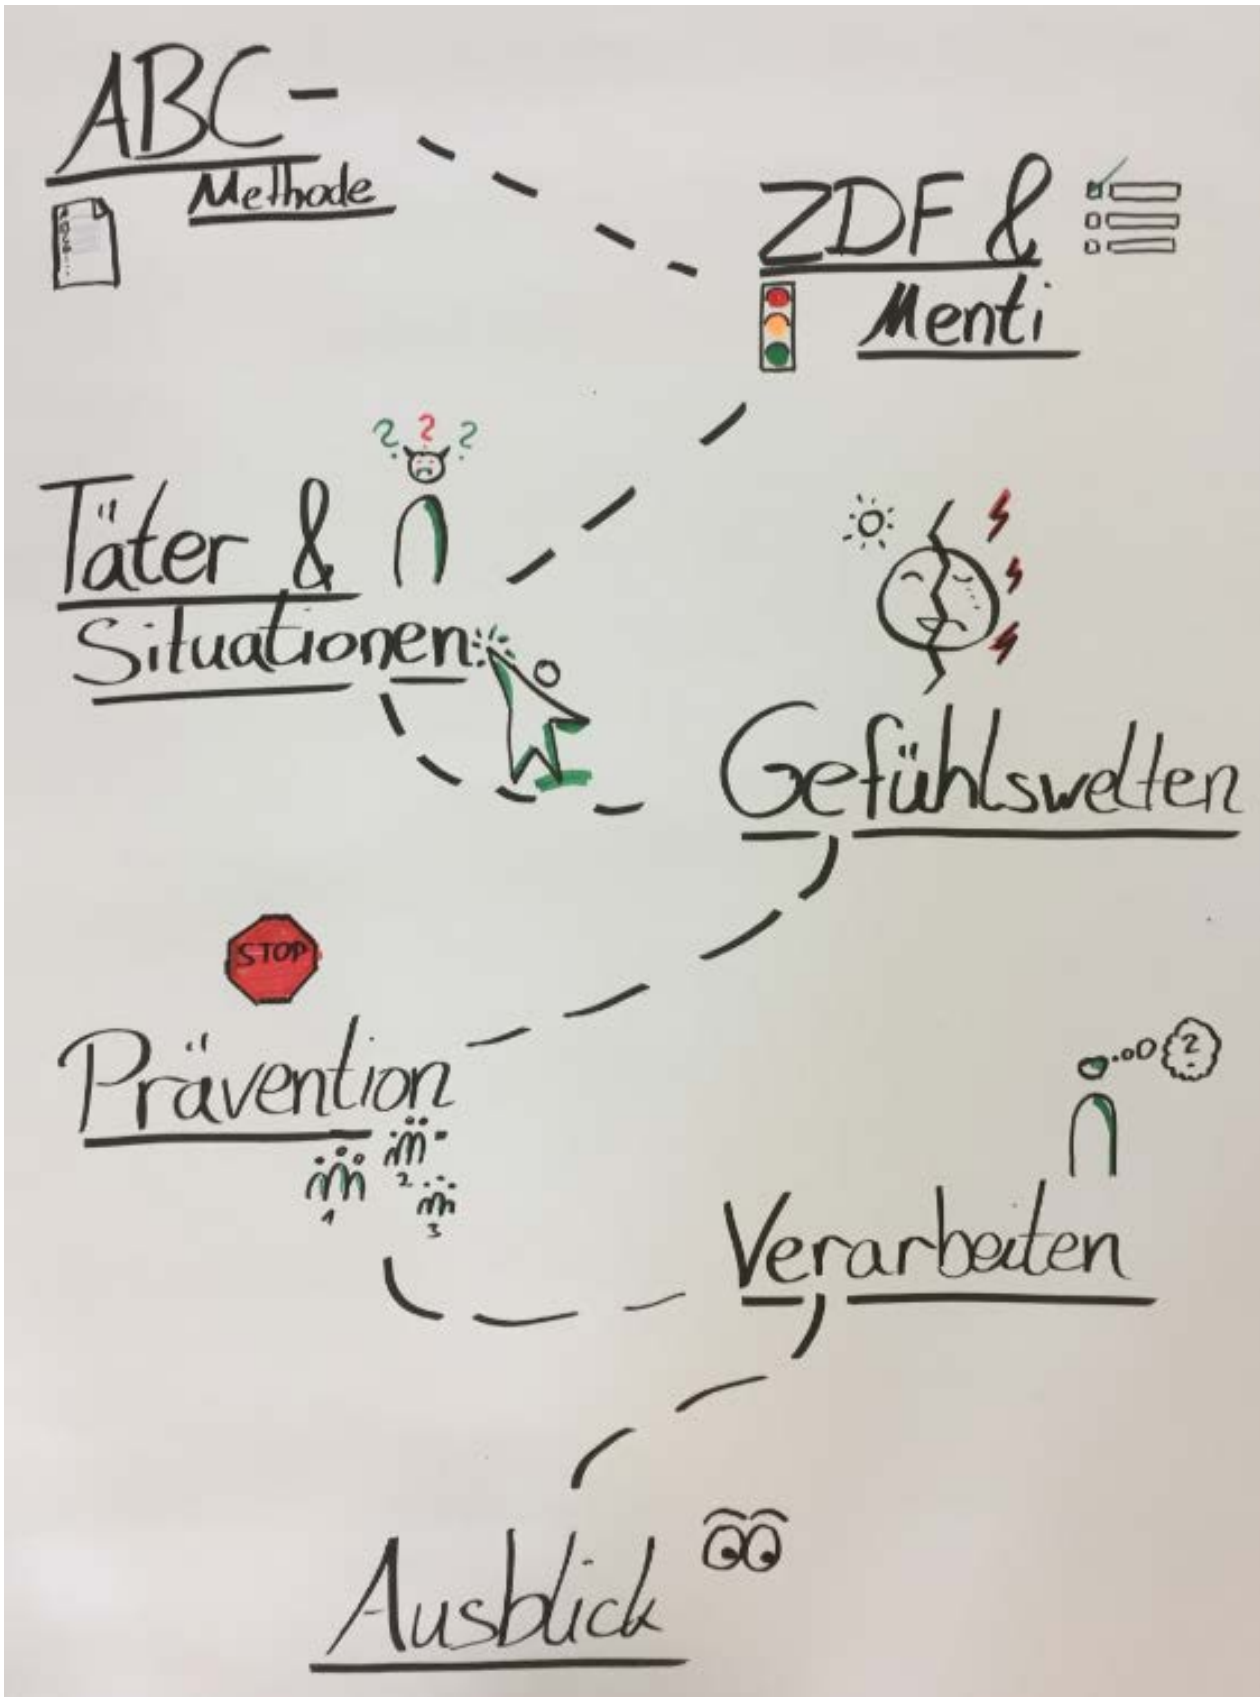 ABC-
Methode
ZDF &
Menti
? ? ?
Täter &
Situationen
Gefühlswelten
STOP
Prävention
1
2
3
?
Verarbeiten
Ausblick